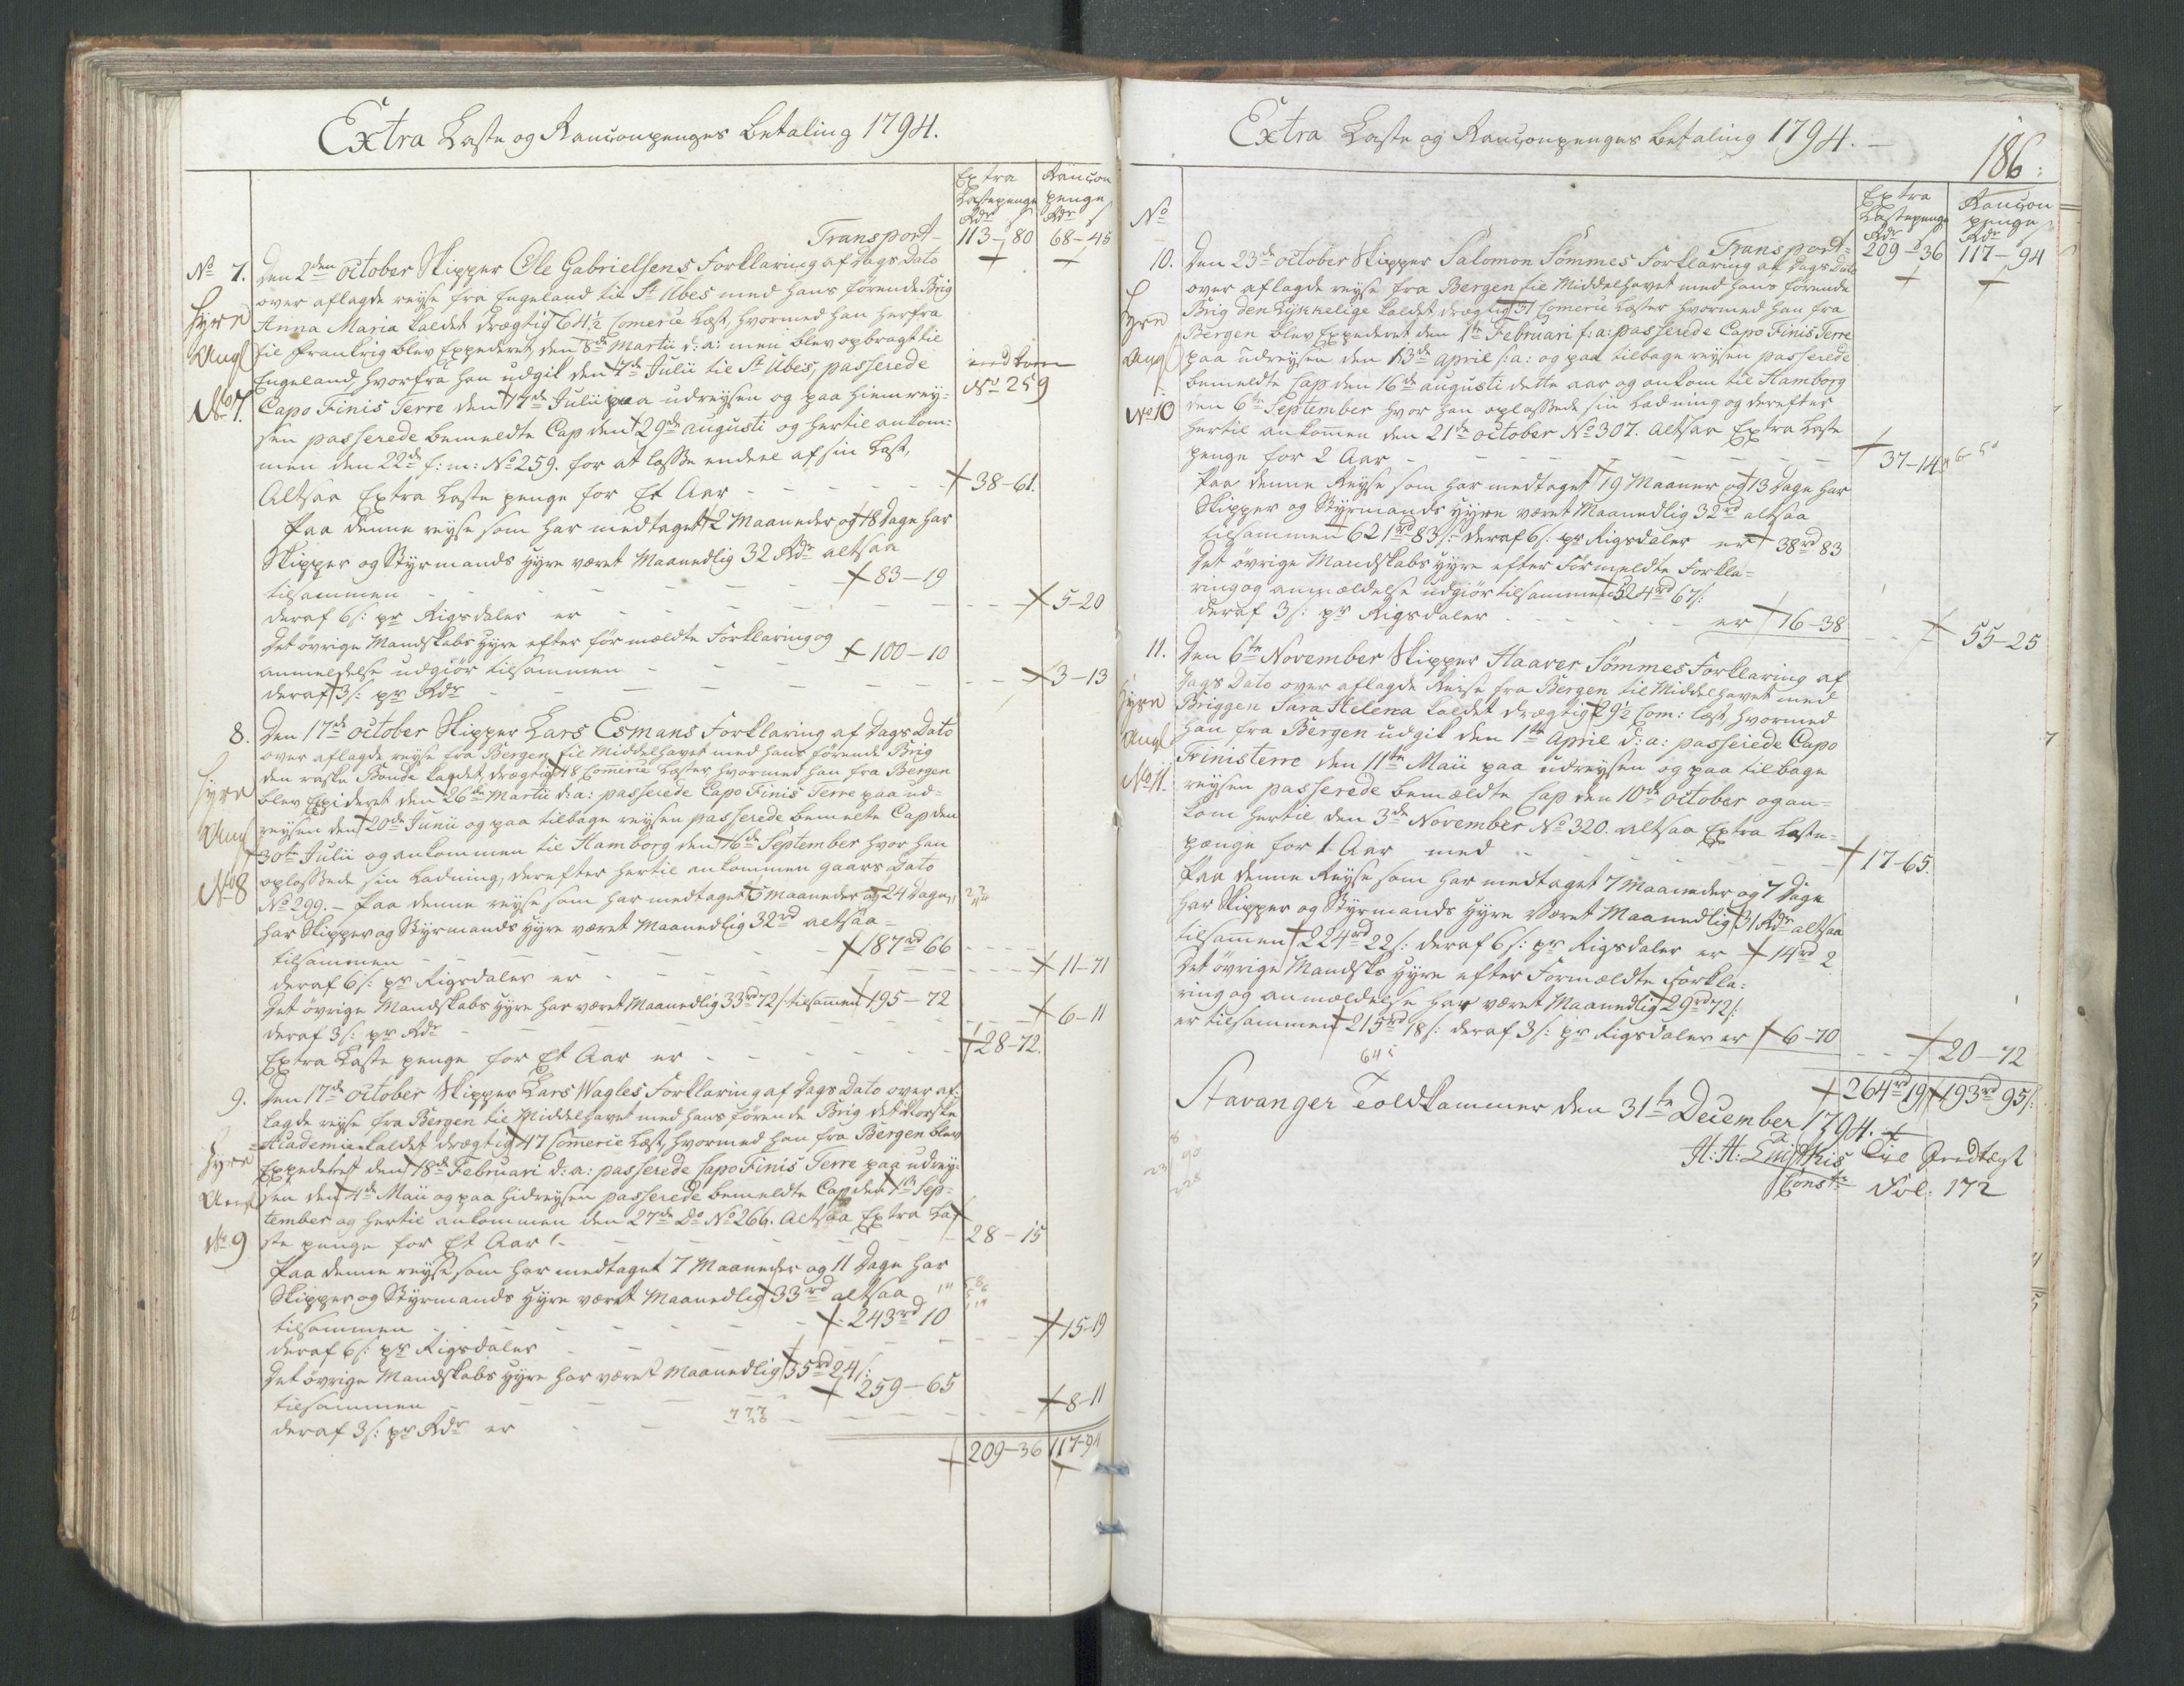 Extra Laste og Rançonpenges Betaling 1794.
Extra Lastepenge Rdr s
Rançon penge Rdr s
Transport - 113-80 68-45
No 7. Den 2den October Skipper Ole Gabrielsens Forklaring af Dags Dato
over aflagde reyse fra Engeland til St Ubes med hans førende Brig
Hyre Anna Maria kaldet drægtig 64½ Comerce Læst, hvormed han herfra
til Frankrig blev Expederet den 8de Martii d: a: men blev opbragt til
Angl Engeland, hvorfra han udgik den 7de Julii til St Ubes, passerede
indkom No 259
No 7. Capo Finis Terre den 17de Julii paa udreysen og paa hiemrey-
sen passerede bemeldte Cap den 29de Augusti og hertil ankom-
men den 22de f: m: No 259. for at losse endeel af sin Last,
Altsaa Extra Laste penge for Et Aar - 38-61.
Paa denne reyse som har medtaget 2 Maaneder og 18 Dage har
Skipper og Styrmands Hyre været Maanedlig 32 Rdr altsaa
tilsammen - 83-19
deraf 6 s: pr Rigsdaler er - 5-20
Det øvrige Mandskabs Hyre efter før mældte Forklaring og
anmeldelse udgiør tilsammen - 100-10
deraf 3 s: pr Rdr - 3-13
8. Den 17de October Skipper Lars Esmans Forklaring af Dags Dato
over aflagde reyse fra Bergen til Middelhavet med hans førende Brig
den raske Bonde kaldet, drægtig 48 Comerce Læster hvormed han fra Bergen
Hyre blev Expideret den 26de Martii d: a: passerede Capo Finis Terre paa ud-
Angl reysen den 20de Junii og paa tilbage reysen passerede bemelte Cap den
30te Julii og ankommen til Hamborg den 16de September hvor han
No 8 oplossede sin Ladning, derefter hertil ankommen gaars Dato
No 299. - Paa denne reyse som har medtaget 5 Maaneder og 24 Dage,
har Skipper og Styrmands Hyre været Maanedlig 32rd altsaa
tilsammen - 187rd 66
deraf 6 s: pr Rigsdaler er - 11-71
Det øvrige Mandskabs Hyre har været Maanedlig 33rd 72 s: tilsamen 195-72
deraf 3 s: pr Rdr - 6-11
Extra Laste penge for Et Aar er - 28-72.
9. Den 17de October Skipper Lars Wagles Forklaring af Dags Dato over af-
lagde reyse fra Bergen til Middelhavet med hans førende Brig det Norske
Academie kaldet drægtig 47 Comerce Læst, hvormed han fra Bergen blev
Hyre Expederet den 18de Februari d: a: passerede Capo Finis Terre paa udrey-
Angl sen den 4de Maii og paa hidreysen passerede bemeldte Cap den 1te Sep-
tember og hertil ankommen den 27de Do No 266. Altsaa Extra La-
No 9 ste penge for Et Aar - 28-15
Paa denne reyse som har medtaget 7 Maaneder og 11 Dage har
Skipper og Styrmands Hyre været Maanedlig 33rd altsaa
tilsammen - 243rd 10
deraf 6 s: pr Rigsdaler - 15-19
Det øvrige Mandskabs Hyre har været Maanedlig 35rd 24 s:
tilsammen - 259-65
deraf 3 s: pr Rdr er - 8-11
209-36 117-94
Extra Laste og Rançonpenges Betaling 1794. -
186:
No
Extra Lastepenge Rdr s
Rançon penge Rdr s
Transport - 209-36 117-94
10. Den 23de October Skipper Salomon Sömmes Forklaring af Dags Dato
over aflagde reyse fra Bergen til Middelhavet med hans førende
Hyre Brig den Lykkelige kaldet drægtig 31 Comerce Læster hvormed han fra
Bergen blev Expederet den 1te Februari f: a: passerede Capo Finis Terre
Angl paa udreysen den 13de April s: a: og paa tilbage reysen passerede
bemeldte Cap den 16de Augusti dette aar og ankom til Hamborg
No 10 den 6te September hvor han oplossede sin Ladning og derefter
hertil ankommen den 21de October No 307. Altsaa Extra Laste
penge for 2 Aar - 37-14
Paa denne Reyse som har medtaget 19 Maaneder og 13 Dage har
Skipper og Styrmands Hyre været Maanedlig 32rd altsaa
tilsammen 621rd 83 s: deraf 6 s: pr Rigsdaler er 38rd 83
Det øvrige Mandskabs Hyre efter Førmeldte Forkla-
ring og anmældelse udgiør tilsammen 524rd 67 s:
deraf 3 s: pr Rigsdaler - er 16-38 - 55-25
11. Den 6te November Skipper Haaver Sömmes Forklaring af
Dags Dato over aflagde Reise fra Bergen til Middelhavet med
Hyre Briggen Sara Helena kaldet drægtig 29½ Com: læst, hvormed
Angl han fra Bergen udgik den 1te April d: a: passerede Capo
Finisterre den 11te Maii paa udreysen og paa tilbage
No 11. reysen passerede bemældte Cap den 10de October og an-
kom hertil den 3de November No 320. altsaa Extra Laste-
penge for 1 Aar med - 17-65.
Paa denne Reyse som har medtaget 7 Maaneder og 7 Dage
har Skipper og Styrmands Hyre været Maanedlig 31 Rdr altsaa
tilsamen 224rd 22 s: deraf 6 s: pr Rigsdaler er 14rd 2
Det øvrige Mandsks Hyre efter Formældte Forkla-
ring og anmældelse har været Maanedlig 29rd 72 s:
er tilsammen 215rd 18 s: deraf 3 s: pr Rigsdaler er 6-70 - 20-72
264rd 19 193rd 95 s:
Stavanger Toldkammer den 31te December 1794.
Til Indtægt
Const:
Fol: 172